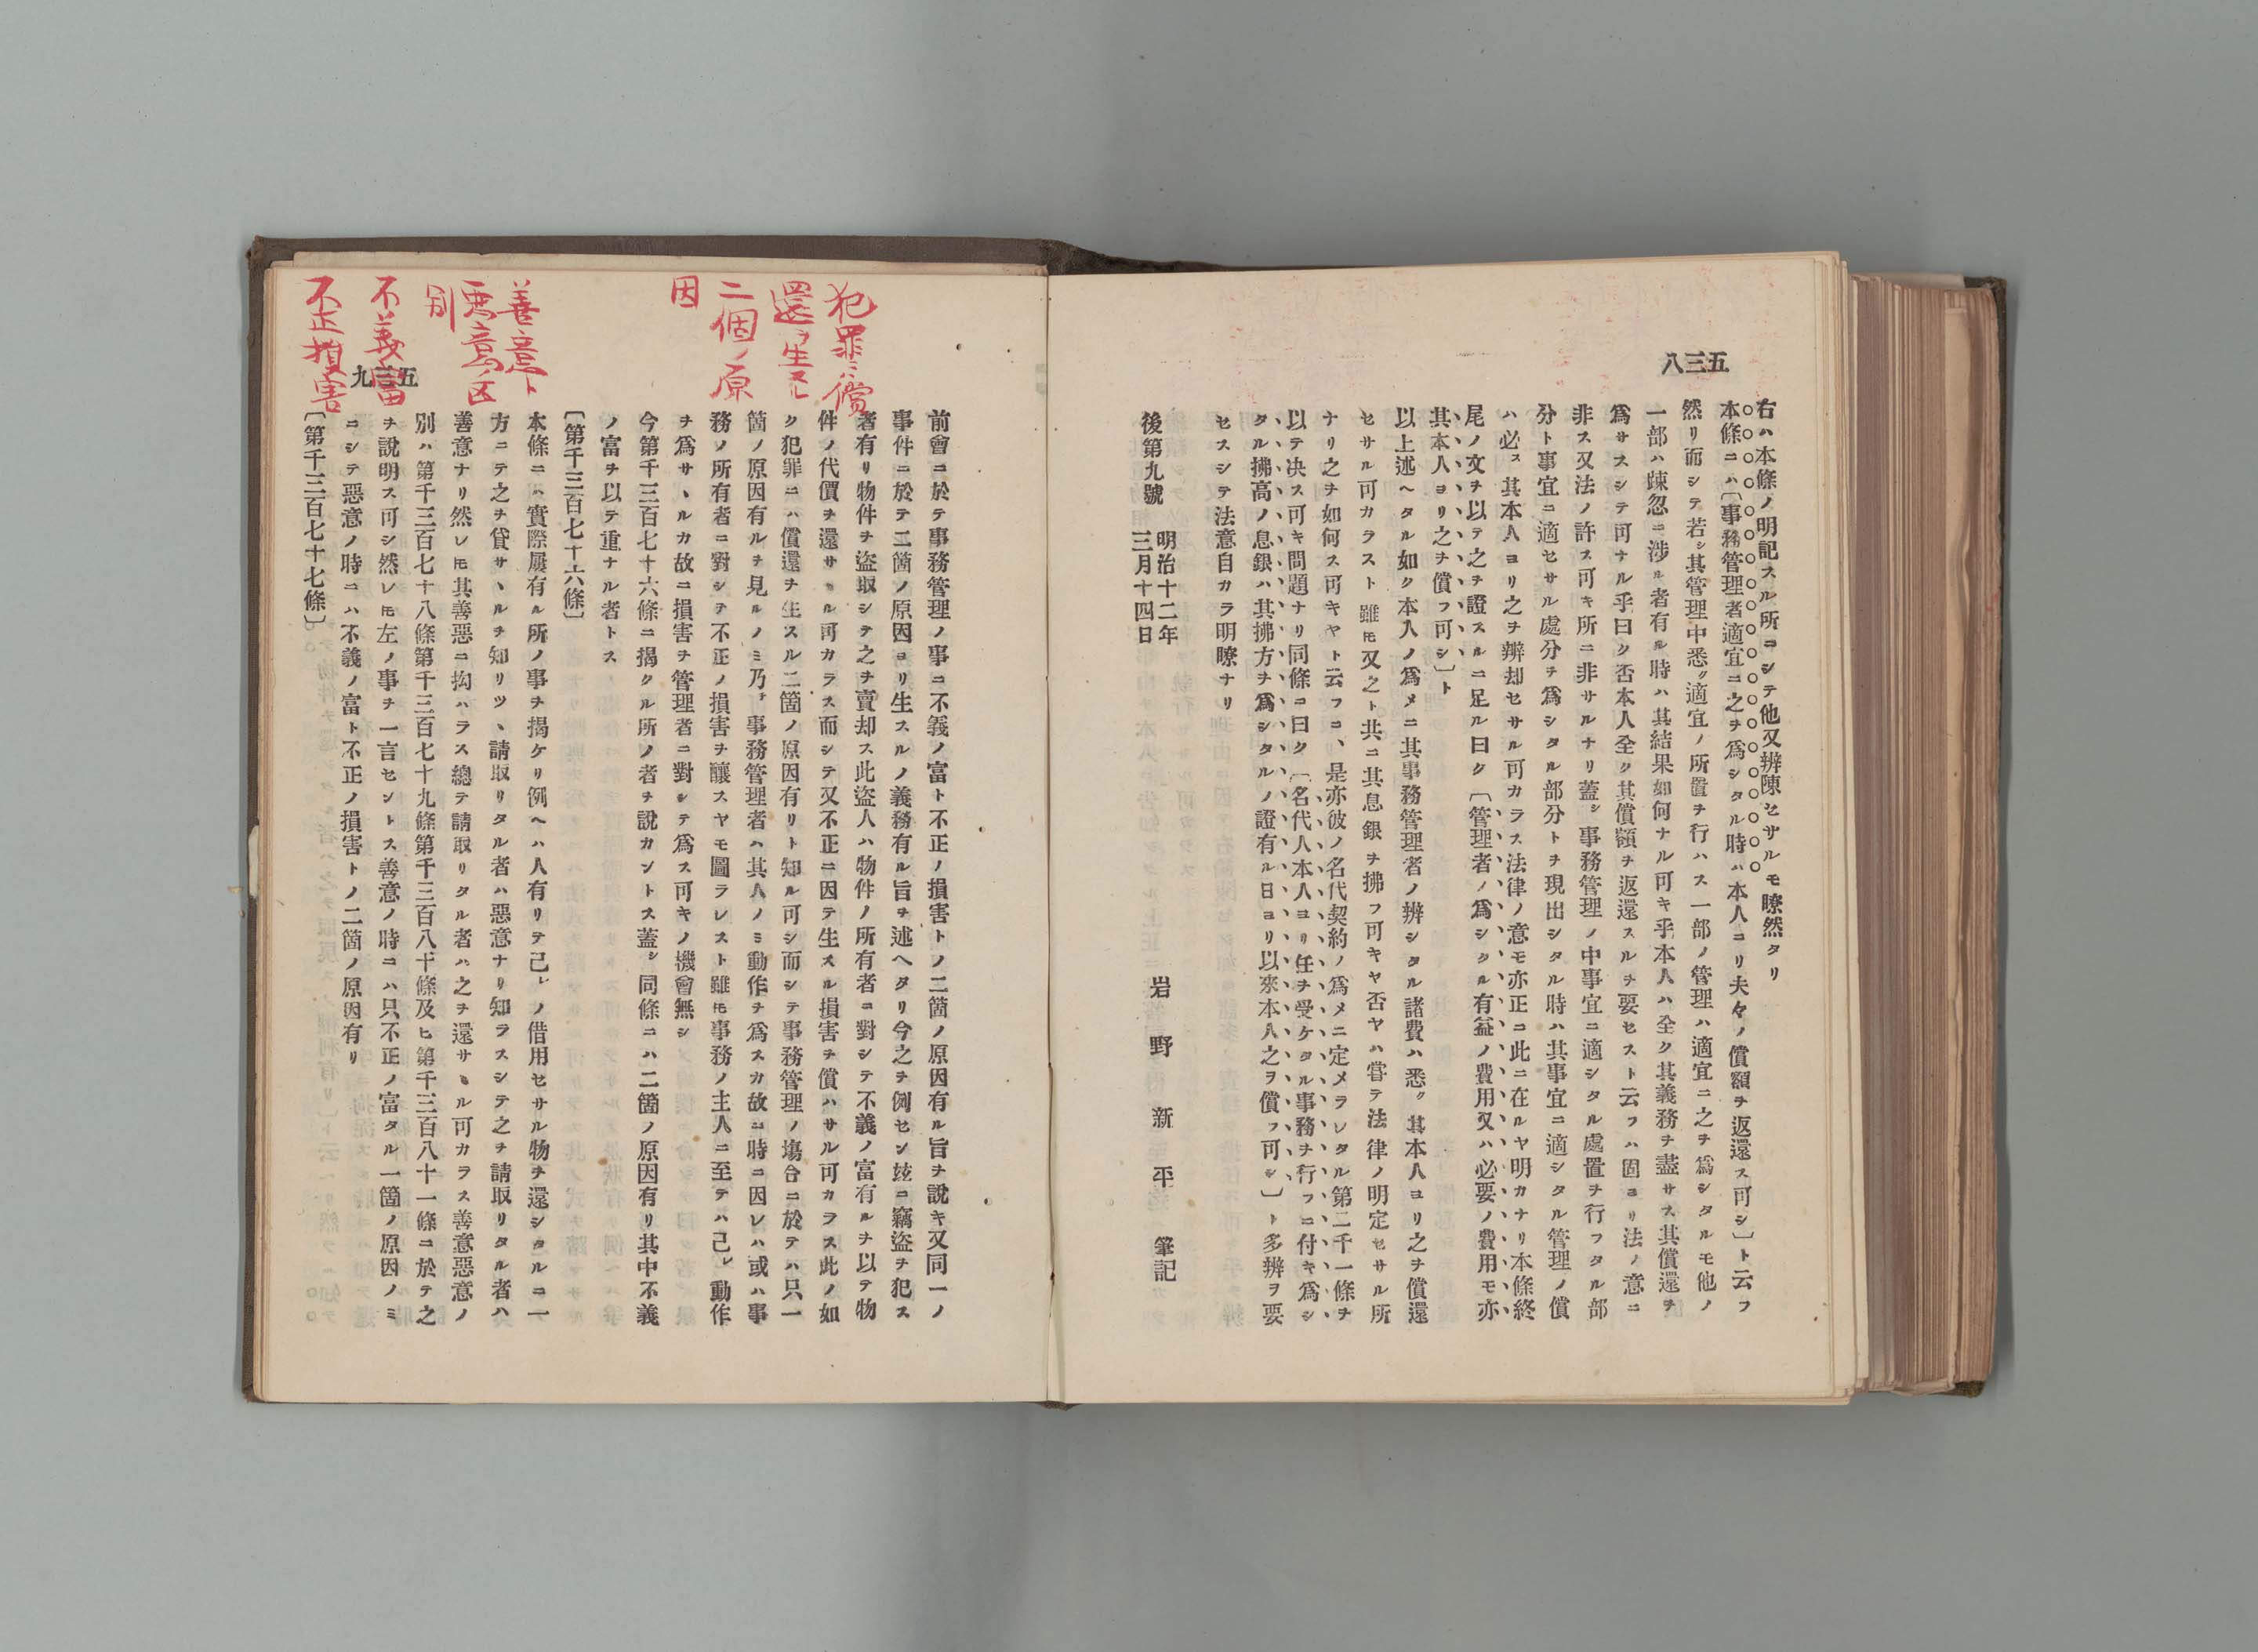 五三八
右ハ本條ノ明記スル所ニシテ他又辨陳セサルモ瞭然タリ
本條ニハ〔事務管理者適宜ニ之ヲ爲シタル時ハ本人ヨリ夫々ノ償額ヲ返還ス可シ〕ト云フ
然リ而シテ若シ其管理中悉ク適宜ノ所置ヲ行ハス一部ノ管理ハ適宜ニ之ヲ爲シタルモ他ノ
一部ハ疎忽ニ渉ル者有ル時ハ其結果如何ナル可キ乎本人ハ全ク其義務ヲ盡サス其償還ヲ
爲サスシテ可ナル乎曰ク否本人全ク其償額ヲ返還スルヲ要セスト云フハ固ヨリ法ノ意ニ
非ス又法ノ許ス可キ所ニ非サルナリ蓋シ事務管理ノ中事宜ニ適シタル處置ヲ行フタル部
分ト事宜ニ適セサル處分ヲ爲シタル部分トヲ現出シタル時ハ其事宜ニ適シタル管理ノ償
ハ必ス其本人ヨリ之ヲ辨却セサル可カラス法律ノ意モ亦正ニ此ニ在ルヤ明カナリ本條終
尾ノ文ヲ以テ之ヲ證スルニ足ル曰ク〔管理者ノ爲シタル有益ノ費用又ハ必要ノ費用モ亦
其本人ヨリ之ヲ償フ可シ〕ト
以上述ヘタル如ク本人ノ爲メニ其事務管理者ノ辨シタル諸費ハ悉ク其本人ヨリ之ヲ償還
セサル可カラスト雖モ又之ト共ニ其息銀ヲ拂フ可キヤ否ヤハ嘗テ法律ノ明定セサル所
ナリ之ヲ如何ス可キヤト云フニ、是亦彼ノ名代契約ノ爲メニ定メラレタル第二千一條ヲ
以テ决ス可キ問題ナリ同條ニ曰ク〔名代人本人ヨリ任ヲ受ケタル事務ヲ行フニ付キ爲シ
タル拂高ノ息銀ハ其拂方ヲ爲シタルノ證有ル日ヨリ以來本人之ヲ償フ可シ〕ト多辨ヲ要
セスシテ法意自カラ明瞭ナリ
後第九號 明治十二年
三月十四日
岩野新平筆記
犯罪ニハ償
還ヲ生スル
二個ノ原
因
善意ト
悪意ノ区
別
不義ノ富
不正ノ損害
五三九
前會ニ於テ事務管理ノ事ニ不義ノ富ト不正ノ損害トノ二箇ノ原因有ル旨ヲ說キ又同一ノ
事件ニ於テ二箇ノ原因ヨリ生スルノ義務有ル旨ヲ述ヘタリ今之ヲ例セン玆ニ竊盜ヲ犯ス
者有リ物件ヲ盜取シテ之ヲ賣却ス此盜人ハ物件ノ所有者ニ對シテ不義ノ富有ルヲ以テ物
件ノ代價ヲ還サヽル可カラス而シテ又不正ニ因テ生スル損害ヲ償ハサル可カラス此ノ如
ク犯罪ニハ償還ヲ生スル二箇ノ原因有リト知ル可シ而シテ事務管理ノ塲合ニ於テハ只一
箇ノ原因有ルヲ見ルノミ乃チ事務管理者ハ其人ノミ動作ヲ爲スカ故ニ時ニ因レハ或ハ事
務ノ所有者ニ對シテ不正ノ損害ヲ釀スヤモ圖ラレスト雖モ事務ノ主人ニ至テハ己レ動作
ヲ爲サヽルカ故ニ損害ヲ管理者ニ對シテ爲ス可キノ機會無シ
今第千三百七十六條ニ揭クル所ノ者ヲ說カントス蓋シ同條ニハ二箇ノ原因有リ其中不義
ノ富ヲ以テ重ナル者トス
〔第千三百七十六條〕
本條ニハ實際屢有ル所ノ事ヲ揭ケリ例ヘハ人有リテ己レノ借用セサル物ヲ還シタルニ一
方ニテ之ヲ貸サヽルヲ知リツヽ請取リタル者ハ惡意ナリ知ラスシテ之ヲ請取リタル者ハ
善意ナリ然レモ其善惡ニ拘ハラス總テ請取リタル者ハ之ヲ還サヽル可カラス善意惡意ノ
別ハ第千三百七十八條第千三百七十九條第千三百八十條及ヒ第千三百八十一條ニ於テ之
ヲ說明ス可シ然レモ左ノ事ヲ一言セントス善意ノ時ニハ只不正ノ富タル一箇ノ原因ノミ
ニシテ惡意ノ時ニハ不義ノ富ト不正ノ損害トノ二箇ノ原因有リ
〔第千三百七十七條〕